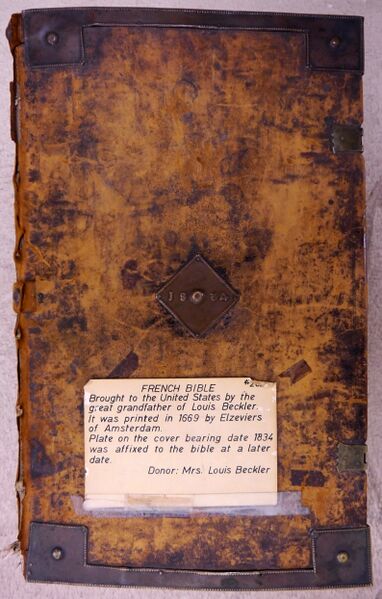 18 34
FRENCH BIBLE
Brought to the United States by the
great grandfather of Louis Beckler.
It was printed in 1669 by Elzeviers
of Amsterdam.
Plate on the cover bearing date 1834
was affixed to the bible at a later
date.
Donor: Mrs. Louis Beckler